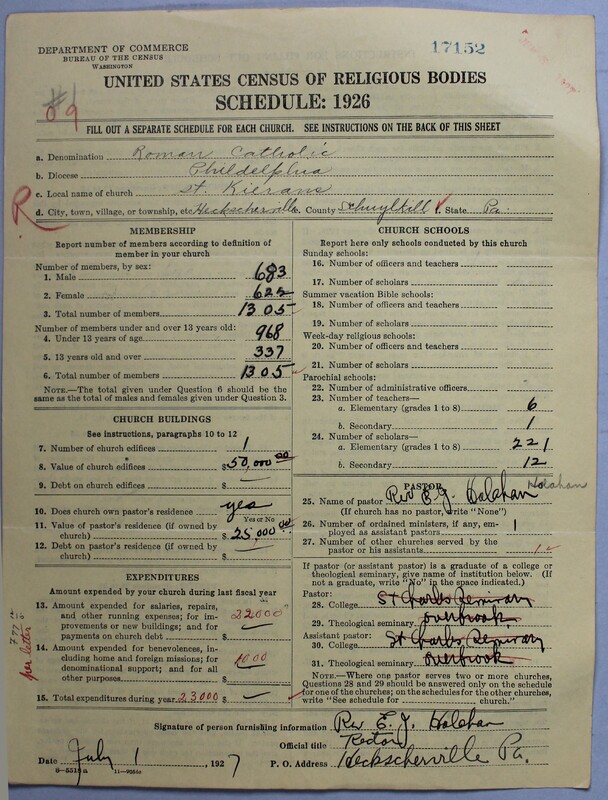 DEPARTMENT OF COMMERCE
BUREAU OF THE CENSUS
WASHINGTON
17152
UNITED STATES CENSUS OF RELIGIOUS BODIES
SCHEDULE: 1926
#1
09
FILL OUT A SEPARATE SCHEDULE FOR EACH CHURCH. SEE INSTRUCTIONS ON THE BACK OF THIS SHEET
a. Denomination Roman Catholic
b. Diocese Phildelphia
c. Local name of church St. Kierans
R
d. City, town, village, or township, etc. Heckscherville e. County Schuylkill f. State Pa.
MEMBERSHIP
Report number of members according to definition of
member in your church
Number of members, by sex:
1. Male 683
2. Female 622
3. Total number of members 1305
Number of members under and over 13 years old:
4. Under 13 years of age 968
5. 13 years old and over 337
6. Total number of members 1305
NOTE.—The total given under Question 6 should be the
same as the total of males and females given under Question 3.
CHURCH BUILDINGS
See instructions, paragraphs 10 to 12
7. Number of church edifices 1
8. Value of church edifices $50,000 00
9. Debt on church edifices $
10. Does church own pastor's residence yes
Yes or No
11. Value of pastor's residence (if owned by
church) $25000 00
12. Debt on pastor's residence (if owned by
church) $
EXPENDITURES
Amount expended by your church during last fiscal year
13. Amount expended for salaries, repairs,
and other running expenses; for im-
provements or new buildings; and for
payments on church debt $
22000
14. Amount expended for benevolences, in-
cluding home and foreign missions; for
denominational support; and for all
other purposes $
1000
15. Total expenditures during year 23000 $
per letter
CHURCH SCHOOLS
Report here only schools conducted by this church
Sunday schools:
16. Number of officers and teachers
17. Number of scholars
Summer vacation Bible schools:
18. Number of officers and teachers
19. Number of scholars
Week-day religious schools:
20. Number of officers and teachers
21. Number of scholars
Parochial schools:
22. Number of administrative officers
23. Number of teachers—
a. Elementary (grades 1 to 8) 6
b. Secondary 1
24. Number of scholars—
a. Elementary (grades 1 to 8) 221
b. Secondary 12
PASTOR
25. Name of pastor Rev E. J. Holahan Holahan
(If church has no pastor, write "None")
26. Number of ordained ministers, if any, em-
ployed as assistant pastors 1
27. Number of other churches served by the
pastor or his assistants
If pastor (or assistant pastor) is a graduate of a college or
theological seminary, give name of institution below. (If
not a graduate, write "No" in the space indicated.)
Pastor:
28. College St Charles Seminary
29. Theological seminary Overbrook
Assistant pastor:
30. College St Charles Seminary
31. Theological seminary Overbrook
NOTE.—Where one pastor serves two or more churches,
Questions 28 and 29 should be answered only on the schedule
for one of the churches; on the schedules for the other churches,
write "See schedule for church."
Signature of person furnishing information Rev E. J. Holahan
Official title Rector
Date July 1, 1927 P. O. Address Heckscherville Pa.
9-5518a 11-9054a